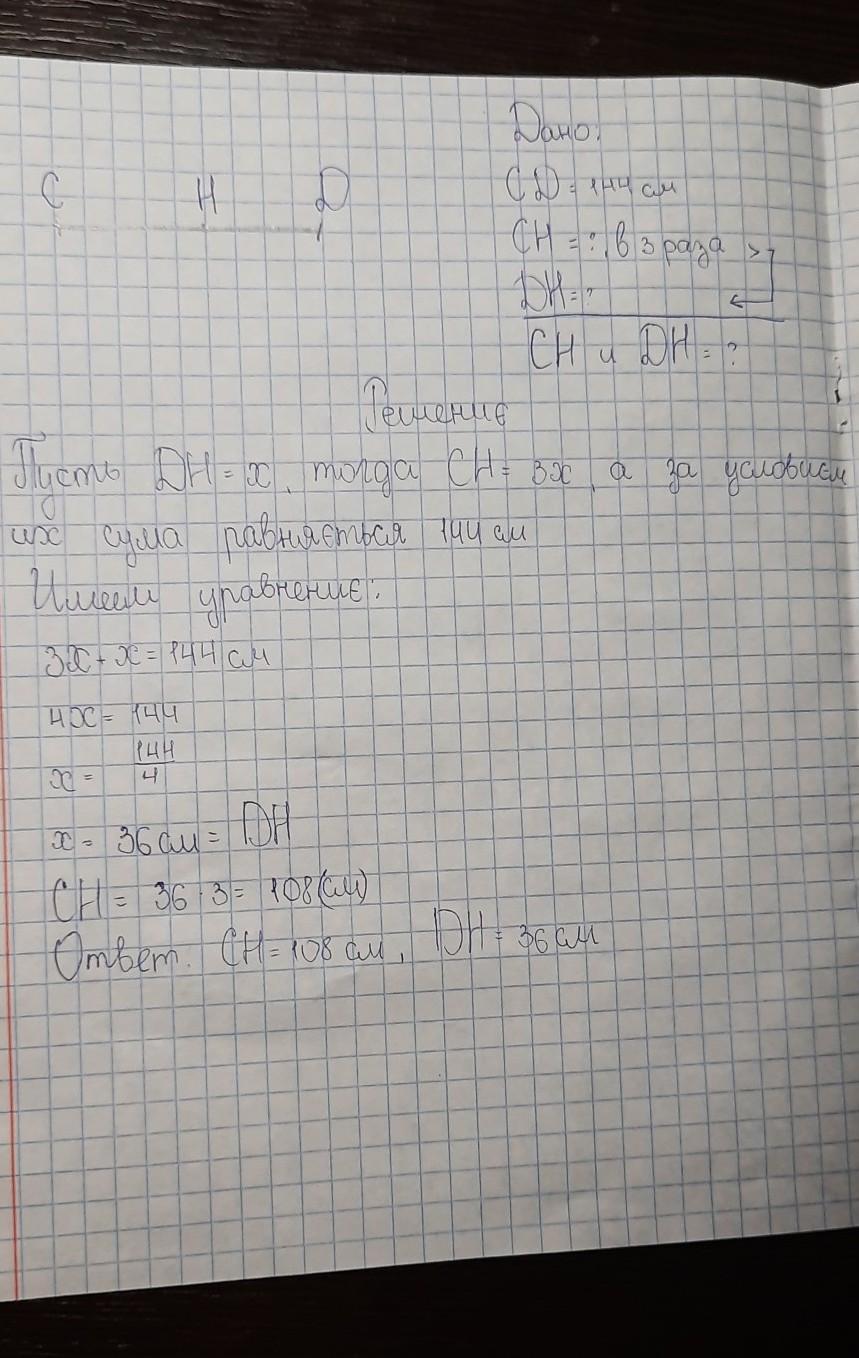 С H D
Дано:
CD = 144 см
CH = ?, в 3 раза >
DH = ?
CH и DH = ?
Решение
Пусть DH = x, тогда CH = 3x, а за условием
их сума равняється 144 см
Имеем уравнениє:
3x + x = 144 см
4x = 144
x = 144/4
x = 36 см = DH
CH = 36 · 3 = 108 (см)
Ответ. CH = 108 см, DH = 36 см